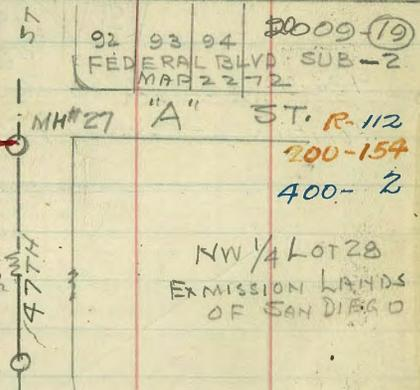 ST
92 93 94
2009-19
FEDERAL BLVD SUB-2
MAP 2272
MH#27 "A" ST. R-112
200-154
400-2
NW 1/4 LOT 28
EX MISSION LANDS
OF SAN DIEGO
47TH